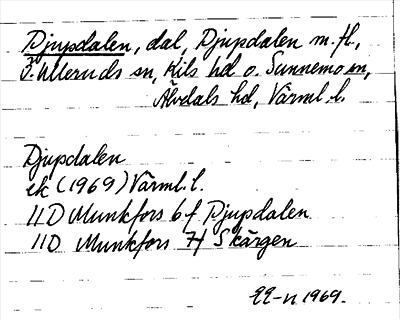 Djupdalen, dal, Djupdalen m.fl.,
Ö. Ulleruds sn, Kils hd o. Sunnemo sn,
Älvdals hd, Värml. l.
Djupdalen
ek (1969) Värml. l.
11D Munkfors 6f Djupdalen
11D Munkfors 7f Skärgen
1969.